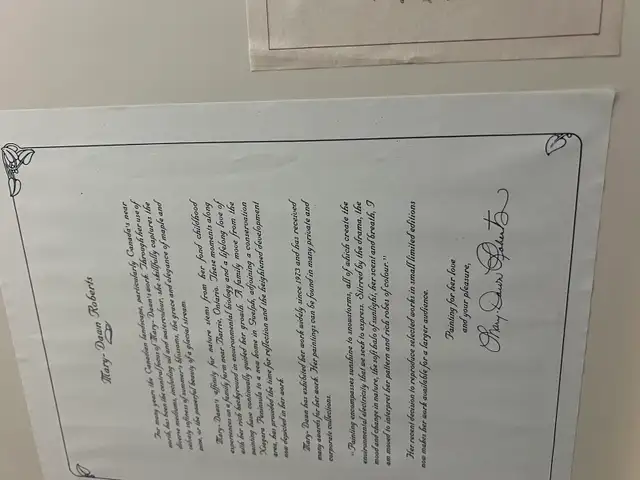 Mary-Dawn Roberts
For many years the Canadian landscape, particularly Canada's near
north, has been the central focus of Mary-Dawn's work. Through her use of
diverse mediums, including oil and watercolour, she skillfully captures the
velvety softness of summer's blossoms, the grace and elegance of maple and
or the peaceful beauty of a glazed stream.
Mary-Dawn's affinity for nature stems from her fond childhood
experiences on a family farm near Barrie, Ontario. These moments along
with her rich background in environmental biology and a lifelong love of
painting have continually guided her growth. A family move from the
Niagara Peninsula to a new home in Guelph, adjoining a conservation
area, has provided the time for reflection and the heightened development
now depicted in her work.
Mary-Dawn has exhibited her work widely since 1973 and has received
many awards for her work. Her paintings can be found in many private and
corporate collections.
"Painting encompasses sunshine to snowstorm, all of which create the
environmental electricity that we seek to express. Stirred by the drama, the
mood and change in nature, the soft halo of sunlight, her scent and breath, I
am moved to interpret her pattern and rich robes of colour."
Her recent decision to reproduce selected works in small limited editions
now makes her work available for a larger audience.
Painting for her love
and your pleasure,
Mary-Dawn Roberts